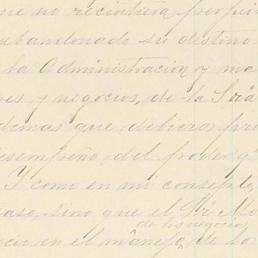 que no recintiera perpui
abandonado su destino
la Administracion y ma
res y negocios, de la Sra
demas que debiera pro
desempeño, del poder q
Y como en mi consepto,
caso, sino que el Sr Mo
de los negocios
cio en el manejo, de la